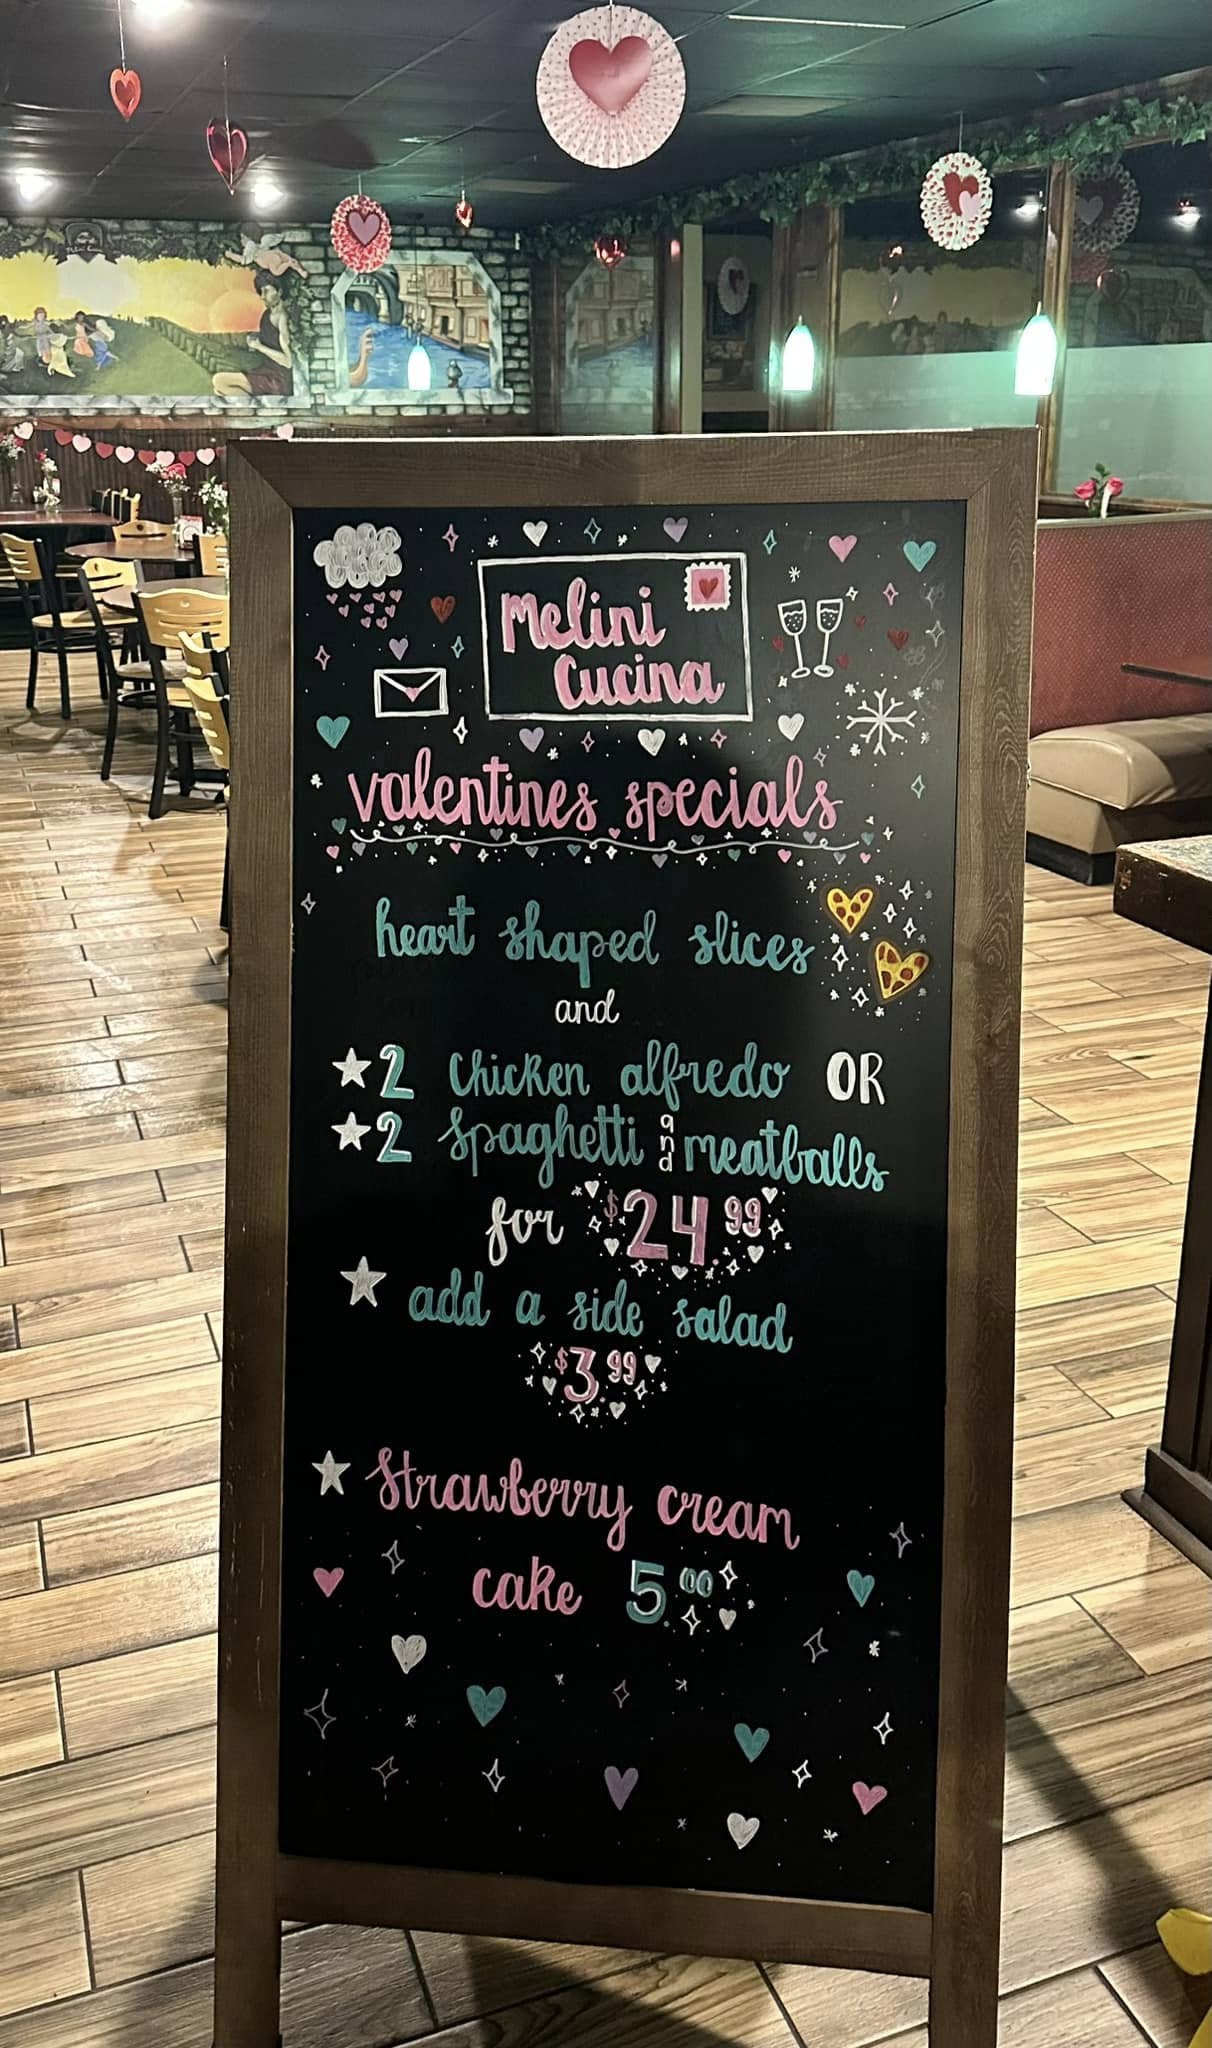 Melini
Cucina
valentines specials
heart shaped slices
and
2 chicken alfredo OR
2 spaghetti and meatballs
for $24.99
add a side salad
$3.99
Strawberry cream
cake 5.00